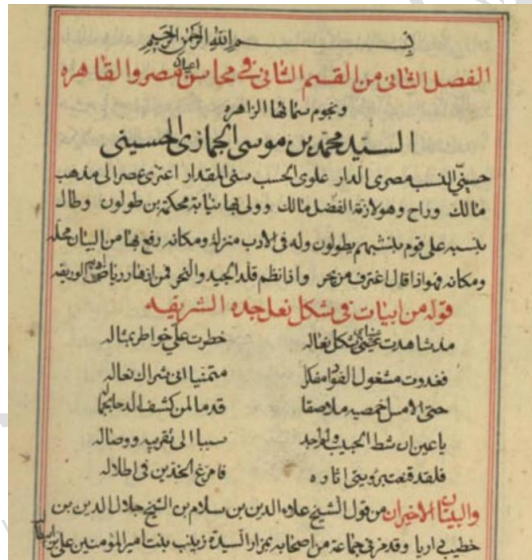 بسم الله الرحمن الرحيم
الفصل الثاني من القسم الثاني في محاسن اعيان مصر والقاهره
ونجوم سمائها الزاهره
السيد محمد بن موسى الجمازي الحسيني
حسيني النسب مصرى الدار علوى الحسب سنى المقدار اعتزى عصرا لى مذهب
مالك وراح وهو لازمة الفضل مالك وولى بها نيابة محكمة بن طولون وطال
بنسبه على قوم بنسبهم يطولون وله في الادب منزلة ومكانه رفع بها من البيان محله
ومكانه فهو اذا قال اغترف من بحر واذا نظم قلد الجيد والنحر فمن ازهار رياضه الوريقه
قوله من ابيات في شكل نعل جده الشريفه
مذ شاهدت عيني شكل نعاله
خطرت علي خواطر بمثاله
فغدوت مشغول الفؤاد مفكرا
متمنيا انى شراك نعاله
حتى الامس اخمصيه ملاصقا
قدما لمن كشف الدجا بجماله
ياعين ان شط الحبيب ولم اجد
سببا الى تقريبه ووصاله
فلقد قنعت برؤيتى اثاره
فامرغ الخدين فى اطلاله
والبيتان الاخيران من قول الشيخ علاء الدين بن سلام بن الشيخ جلال الدين بن
خطيب داريا وقد مر في جماعة من اصحابه بمزار السيدة زينب بنت امير المؤمنين على بن